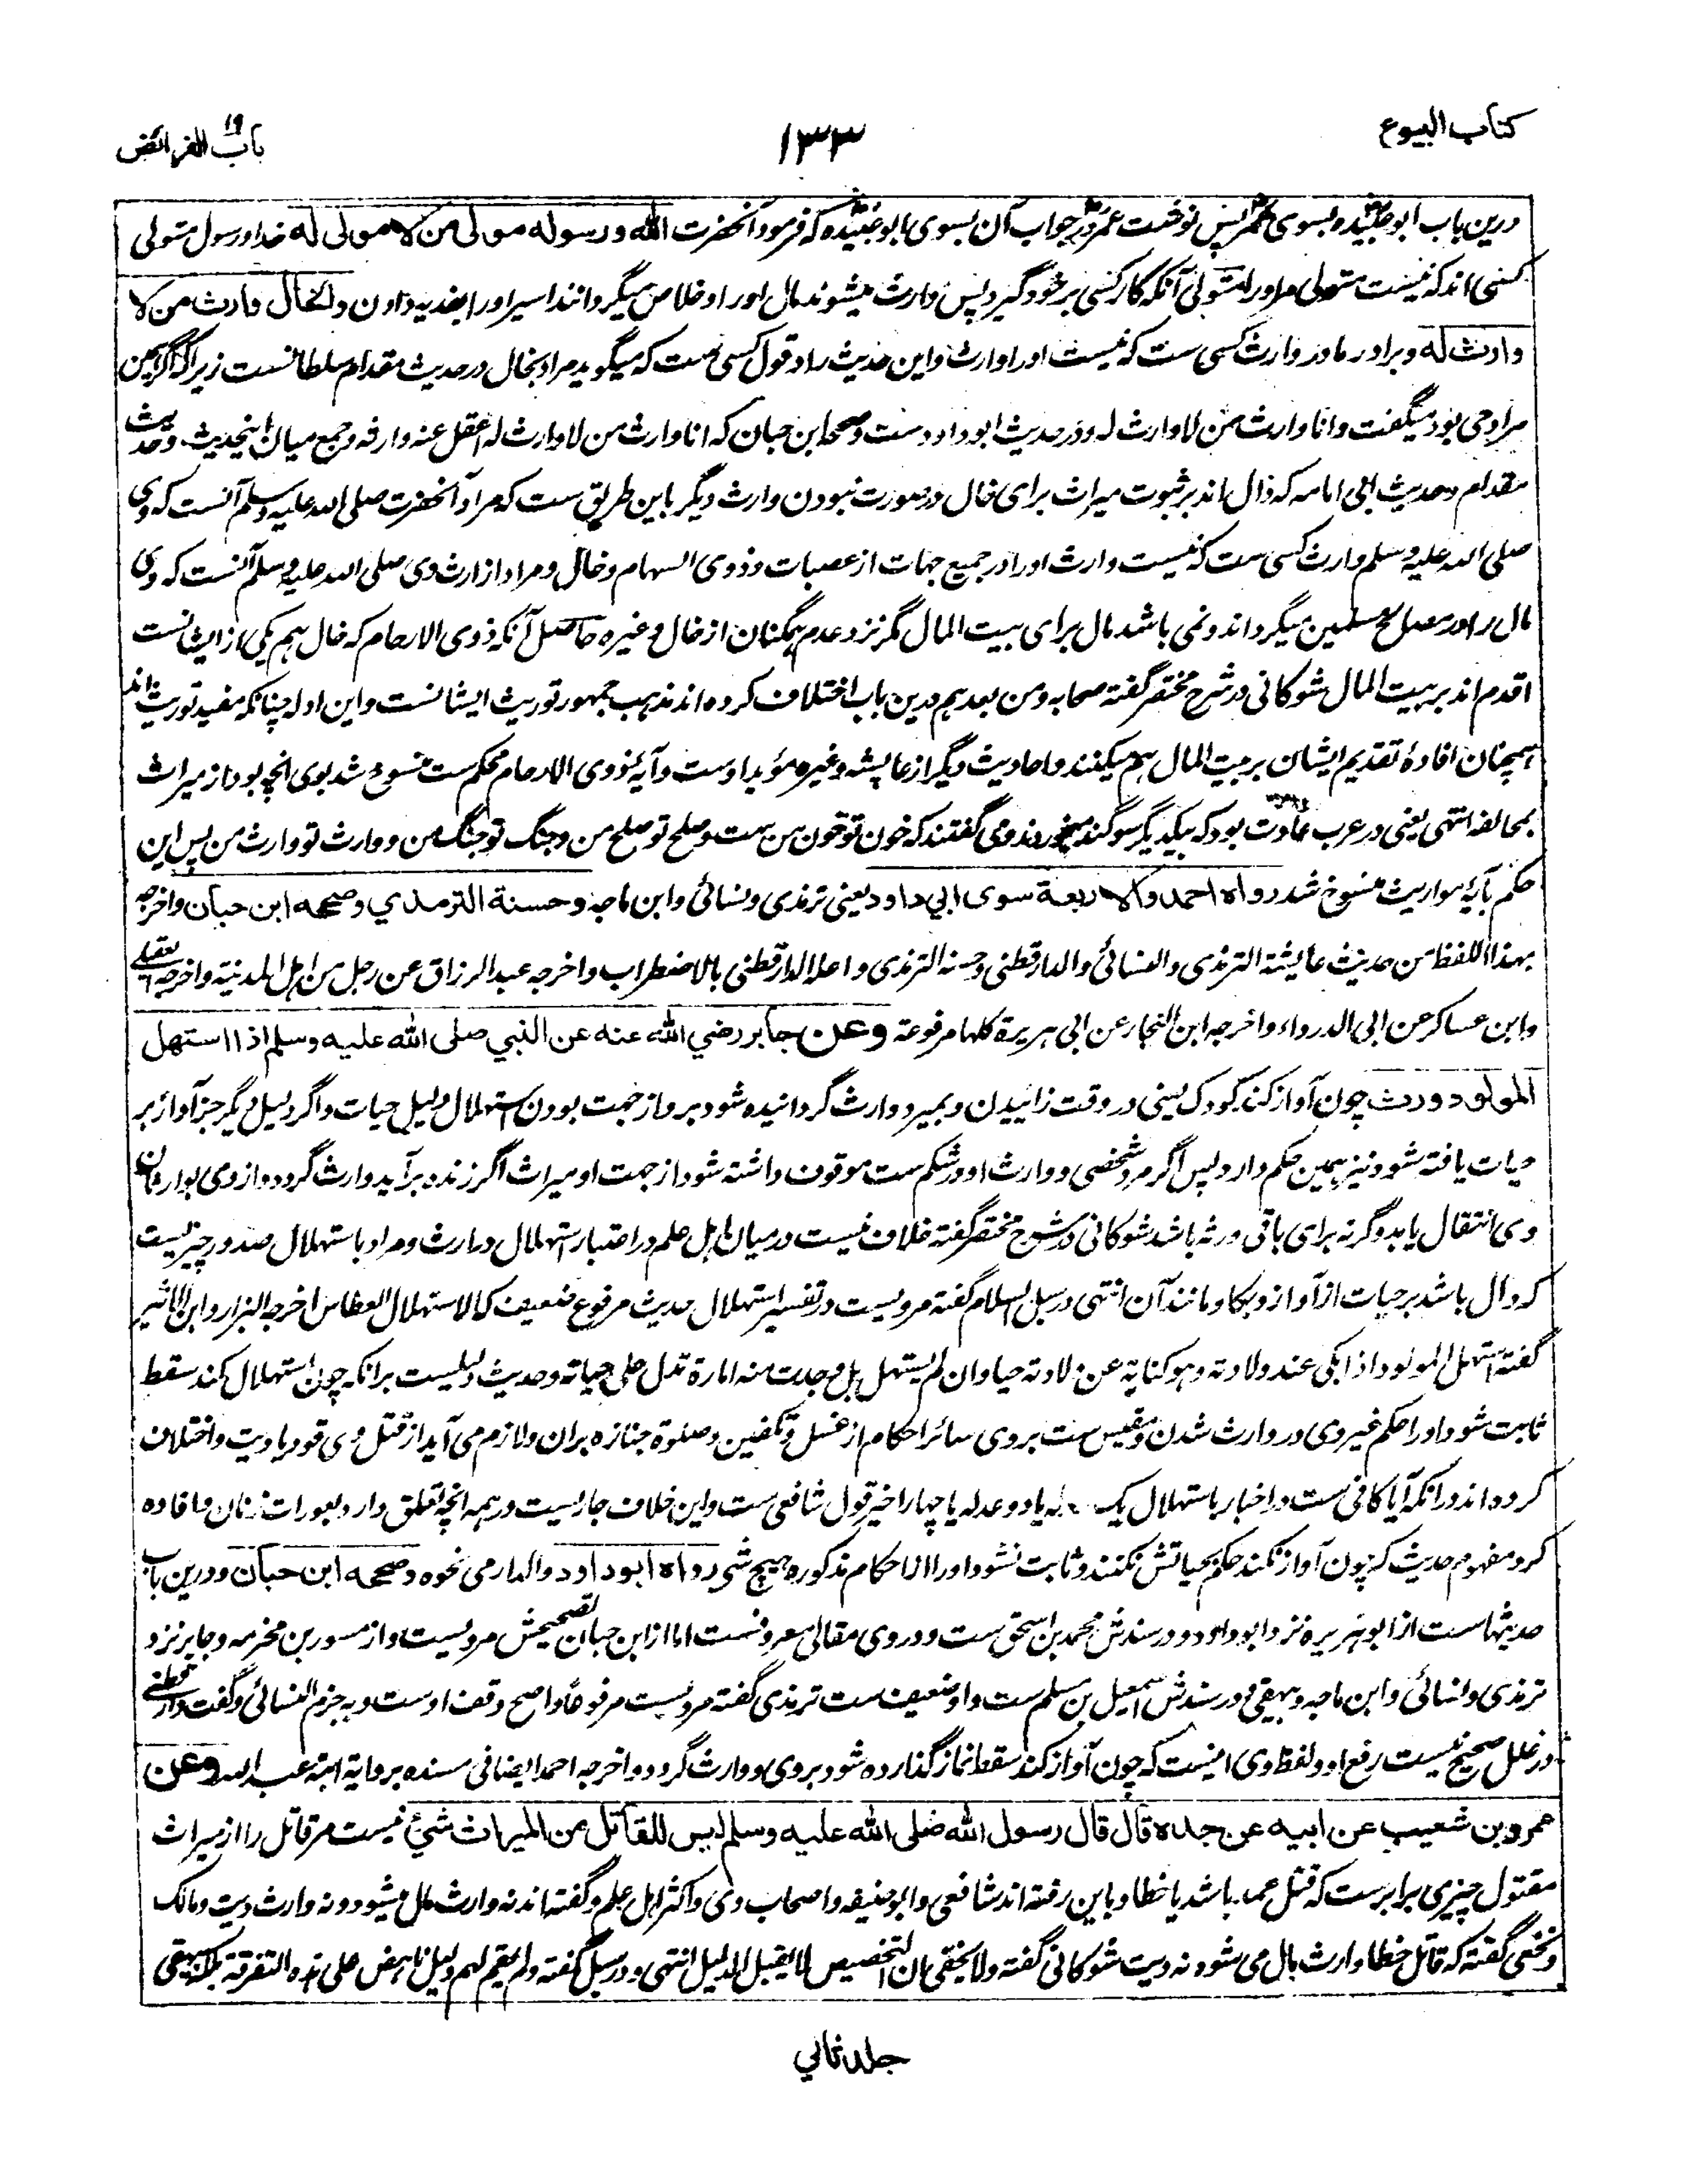 كتاب البيوع
١٣٣
باب الفرائض
١٩
درین باب ابو عبیده بسوی عمر پس نوشت عمر در جواب آن بسوی ابو عبیده که فرمود آنحضرت الله ورسوله مولى من لا مولى له خدا و رسول متولی
کسی اند که نیست متولی مر او را متولی آنکه کار کسی بر خود گیرد پس وارث میشوند مال او را و خلاص میگردانند اسیر او را بفدیه دادن والخال وارث من لا
وارث له و برادر مادر وارث کسی ست که نیست او را وارث و این حدیث راد قول کسی ست که میگوید مراد بخال در حدیث مقدام سلطانست زیرا که اگر همین
مراد می بود میگفت وانا وارث من لا وارث له و در حدیث ابو داود ست و صححه ابن حبان که انا وارث من لا وارث له اعقل عنه وارثه و جمع میان اینحدیث و حدیث
مقدام و حدیث ابی امامه که دال اند بر ثبوت میراث برای خال در صورت نبودن وارث دیگر باین طریق ست که مراد آنحضرت صلی الله علیه وسلم آنست که وی
صلی الله علیه وسلم وارث کسی ست که نیست وارث او را در جمیع جهات از عصبات و ذوی السهام و خال و مراد از ارث وی صلی الله علیه وسلم آنست که وی
مال را در مصالح مسلمین میگرداند و نمی باشد مال برای بیت المال مگر نزد عدم همگنان از خال و غیره حاصل آنکه ذوی الارحام که خال هم یکی از ایشانست
اقدم اند بر بیت المال شوکانی در شرح مختصر گفته صحابه و من بعد هم درین باب اختلاف کرده اند مذهب جمهور توریث ایشانست و این ادله چنانکه مفید توریث اند
همچنان افادهٔ تقدیم ایشان بر بیت المال هم میکنند و احادیث دیگر از عایشه و غیره مؤید اوست و آیهٔ ذوی الارحام محکم ست منسوخ شد بوی آنچه بود از میراث
بمحالفه انتهی یعنی در عرب عادت بود که بیکدیگر سوگند میخوردند و می گفتند که خون تو خون من ست و صلح تو صلح من و جنگ تو جنگ من و وارث تو وارث من پس این
حکم بآیهٔ مواریث منسوخ شد رواه احمد والاربعة سوى ابي داود یعنی ترمذی و نسائی و ابن ماجه وحسنة الترمذي وصححه ابن حبان واخرجه
بهذا اللفظ من حدیث عایشة الترمذی والنسائی والدارقطنی وحسنه الترمذی واعله الدارقطنی بالاضطراب واخرجه عبد الرزاق عن رجل من اهل المدینة واخرجه العقیلی
وابن عساکر عن ابی الدرداء واخرجه ابن النجار عن ابی هریرة کلها مرفوعة وعن جابر رضي الله عنه عن النبي صلى الله عليه وسلم اذا استهل
المولود ورث چون آواز کند کودک یعنی در وقت زائیدن و بمیرد وارث گردانیده شود بر و از جهت بودن استهلال دلیل حیات و اگر دلیل دیگر جز آواز بر
حیات یافته شود نیز همین حکم دارد پس اگر مرد شخصی و وارث او در شکم ست موقوف داشته شود از جهت او میراث اگر زنده برآید وارث گردد و از وی بوارثان
وی انتقال یابد و گرنه برای باقی ورثه باشد شوکانی در شرح مختصر گفته خلاف نیست در میان اهل علم در اعتبار استهلال در ارث و مراد باستهلال صدور چیزیست
که دال باشد بر حیات از آواز و بکا و مانند آن انتهی در سبل السلام گفته مرویست در تفسیر استهلال حدیث مرفوع ضعیف کالاستهلال العطاس اخرجه البزار و ابن الاثیر
گفته استهل المولود اذا بکی عند ولادته وهو کنایة عن ولادته حیا وان لم یستهل بل وجدت منه امارة تدل علی حیاته و حدیث دلیلیست برانکه چون استهلال کند سقط
ثابت شود او را حکم غیر وی در وارث شدن و مقیس ست بر وی سائر احکام از غسل و تکفین و صلوة جنازه بران و لازم می آید از قتل وی قود یا دیت و اختلاف
کرده اند درانکه آیا کافی ست در اخبار باستهلال یک عدله یا دو عدله یا چهار اخیر قول شافعی ست و این خلاف جاریست در همه آنچه تعلق دارد بعورات زنان و افاده
کرد مفهوم حدیث که چون آواز نکند حکم بحیاتش نکنند و ثابت نشود او را از احکام مذکوره هیچ شی رواه ابو داود والدارمی نحوه وصححه ابن حبان و درین باب
حدیثهاست از ابو هریره نزد ابو داود و در سندش محمد بن اسحق ست و در وی مقالی معروفست اما از ابن حبان تصحیحش مرویست و از مسور بن مخرمه و جابر نزد
ترمذی و نسائی و ابن ماجه و بیهقی در سندش اسمعیل بن مسلم ست و او ضعیف ست ترمذی گفته مرویست مرفوعا و اصح وقف اوست و به جزم النسائی و گفت دارقطنی
در علل صحیح نیست رفع او و لفظ وی اینست که چون آواز کند سقط نماز گذارده شود بر وی و وارث گردد و اخرجه احمد ایضا فی سنده بروایة ابنه عبد الله وعن
عمرو بن شعيب عن ابيه عن جده قال قال رسول الله صلى الله عليه وسلم ليس للقاتل من الميراث شئ نیست مر قاتل را از میراث
مقتول چیزی برابرست که قتل عمد باشد یا خطا و باین رفته اند شافعی و ابو حنیفه و اصحاب وی و اکثر اهل علم و گفته اند نه وارث مال میشود و نه وارث دیت و مالک
و نخعی گفته که قاتل خطا وارث مال می شود نه دیت شوکانی گفته ولا یخفی ان التخصیص لا یقبل الا لدلیل انتهی و در سبل گفته ولم یقم لهم دلیل ناهض علی هذه التفرقة بلکه بیهقی
جلد ثاني